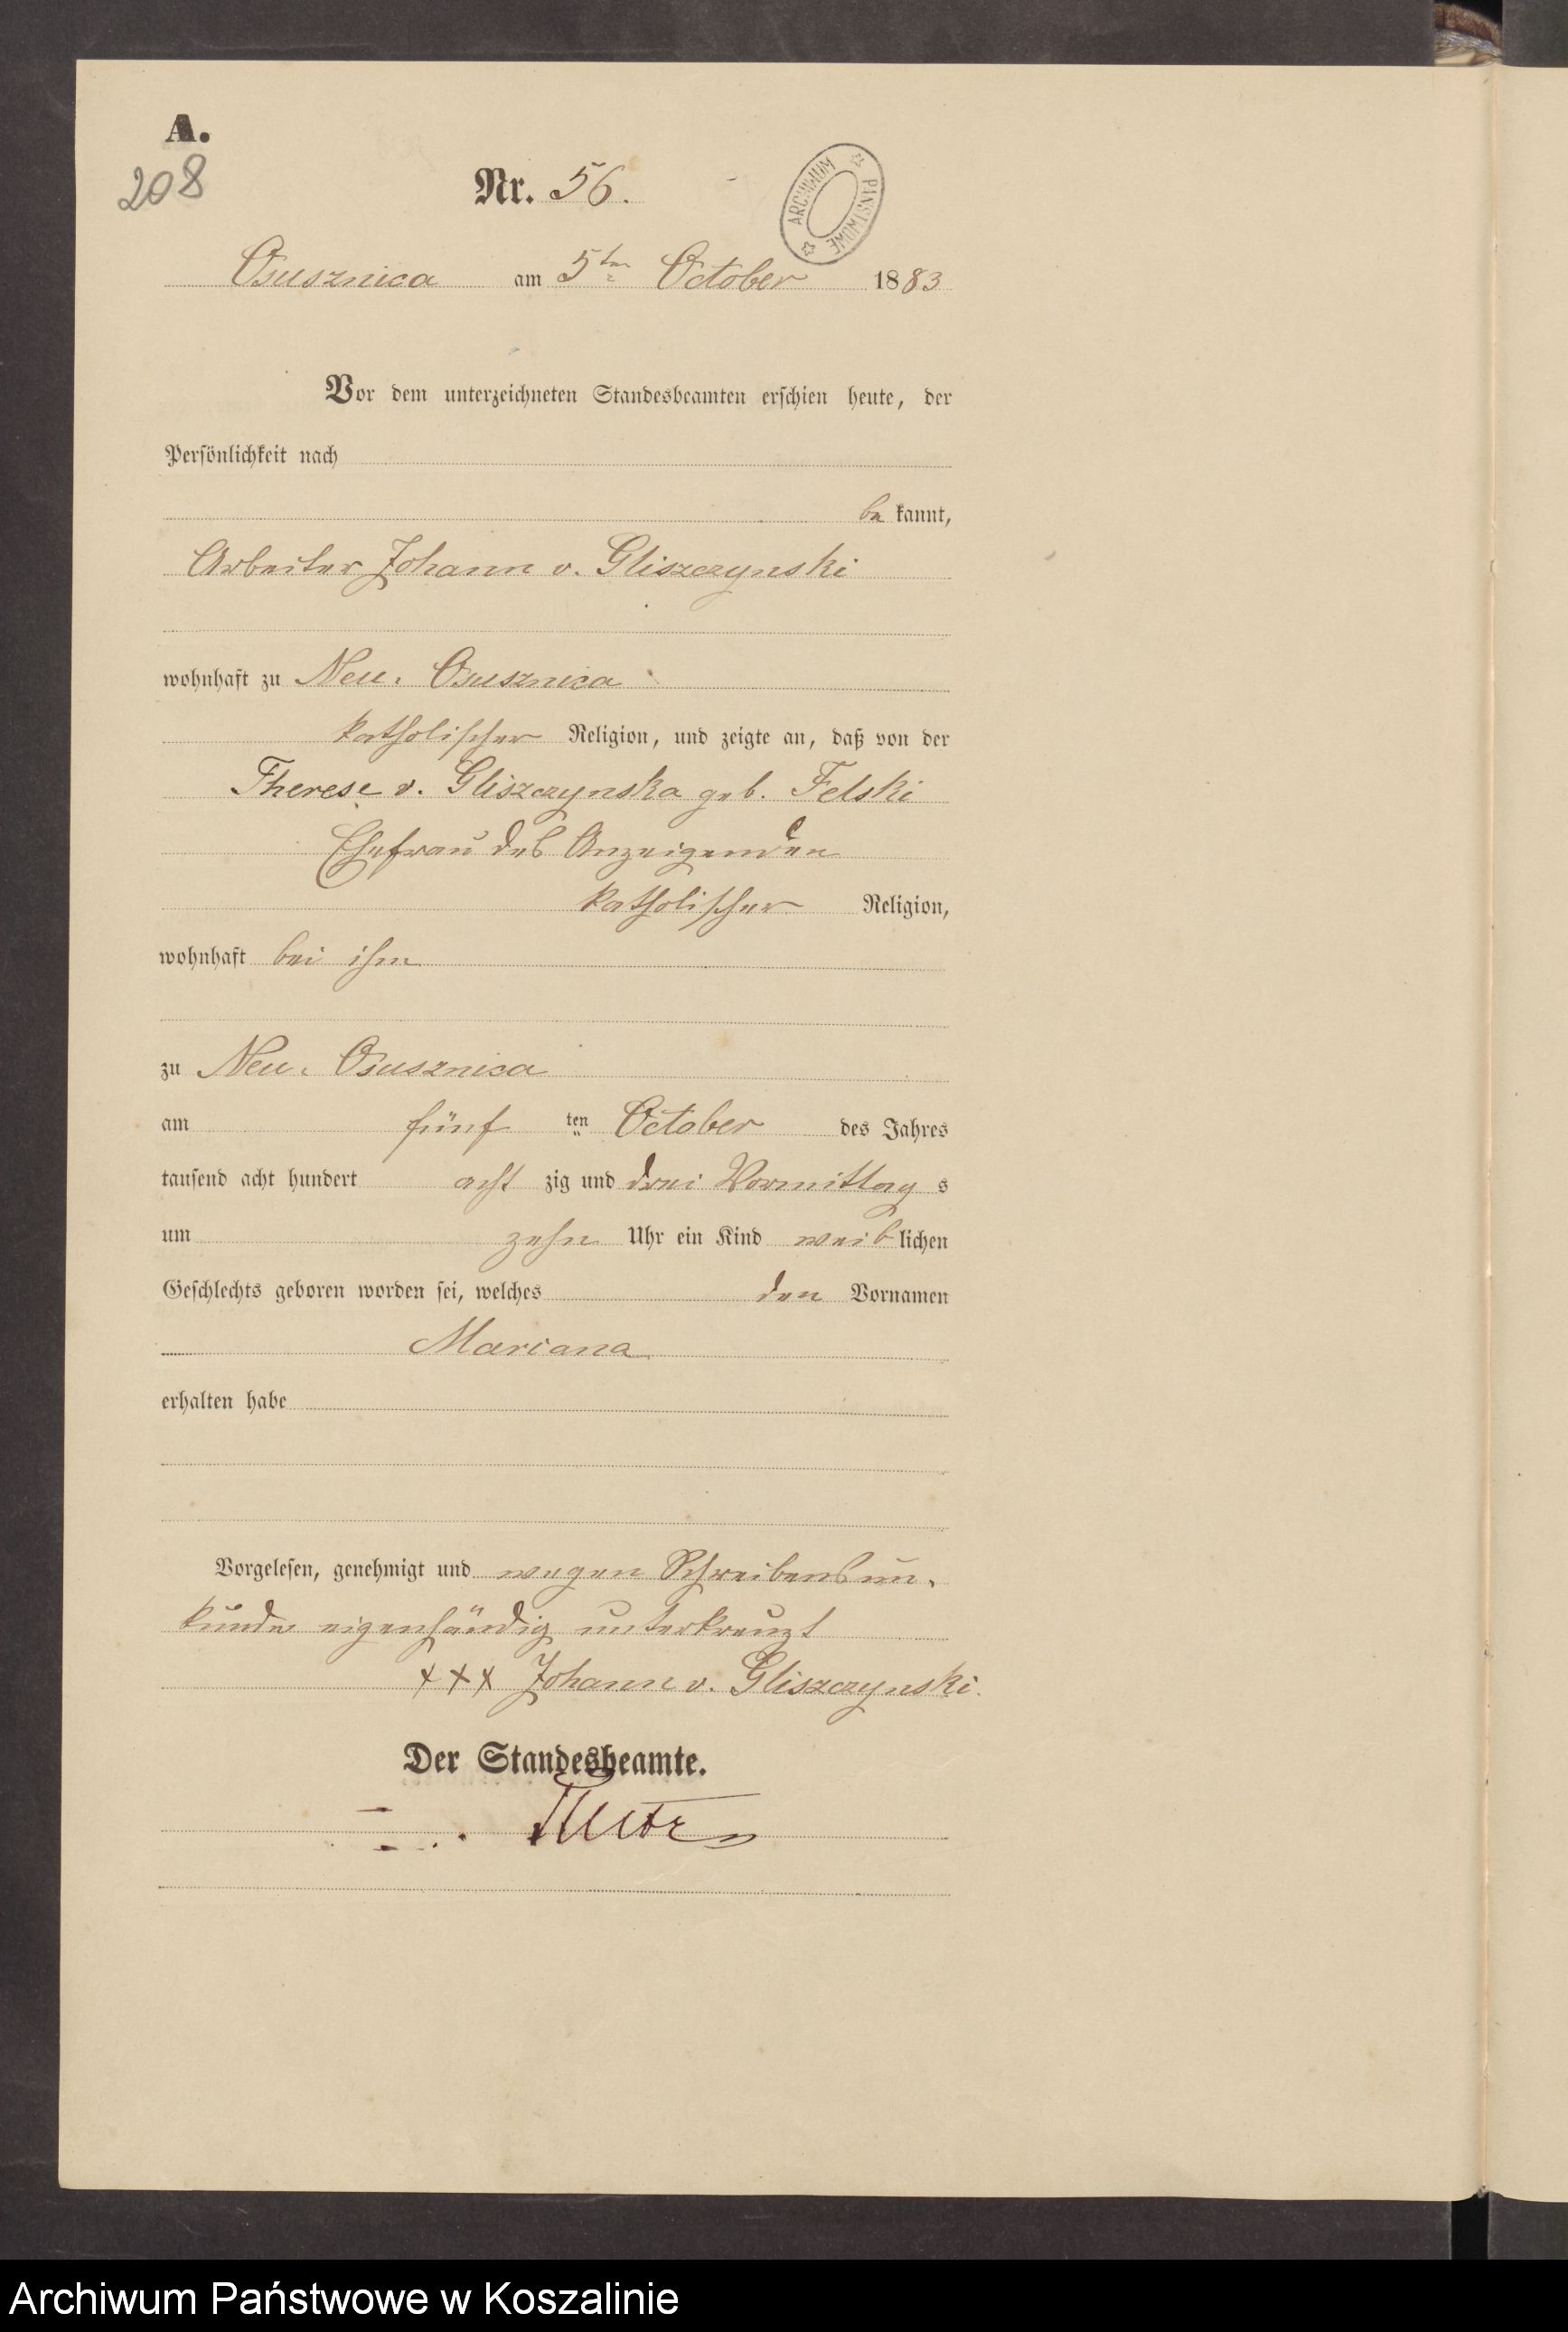 A.
208
Nr. 56.
ARCHIWUM PAŃSTWOWE
Osusznica am 5ten October 1883
Vor dem unterzeichneten Standesbeamten erschien heute, der
Persönlichkeit nach
be kannt,
Arbeiter Johann v. Gliszczynski
wohnhaft zu Neu. Osusznica
katholischer Religion, und zeigte an, daß von der
Therese v. Gliszczynska geb. Felski
Ehefrau des Anzeigenden
katholischer Religion,
wohnhaft bei ihm
zu Neu. Osusznica
am fünf ten October des Jahres
tausend acht hundert acht zig und drei Vormittag s
um zehn Uhr ein Kind weib lichen
Geschlechts geboren worden sei, welches den Vornamen
Mariana
erhalten habe
Vorgelesen, genehmigt und wegen Schreibensun-
kunde eigenhändig unterkreuzt
+++ Johann v. Gliszczynski.
Der Standesbeamte.
Archiwum Państwowe w Koszalinie